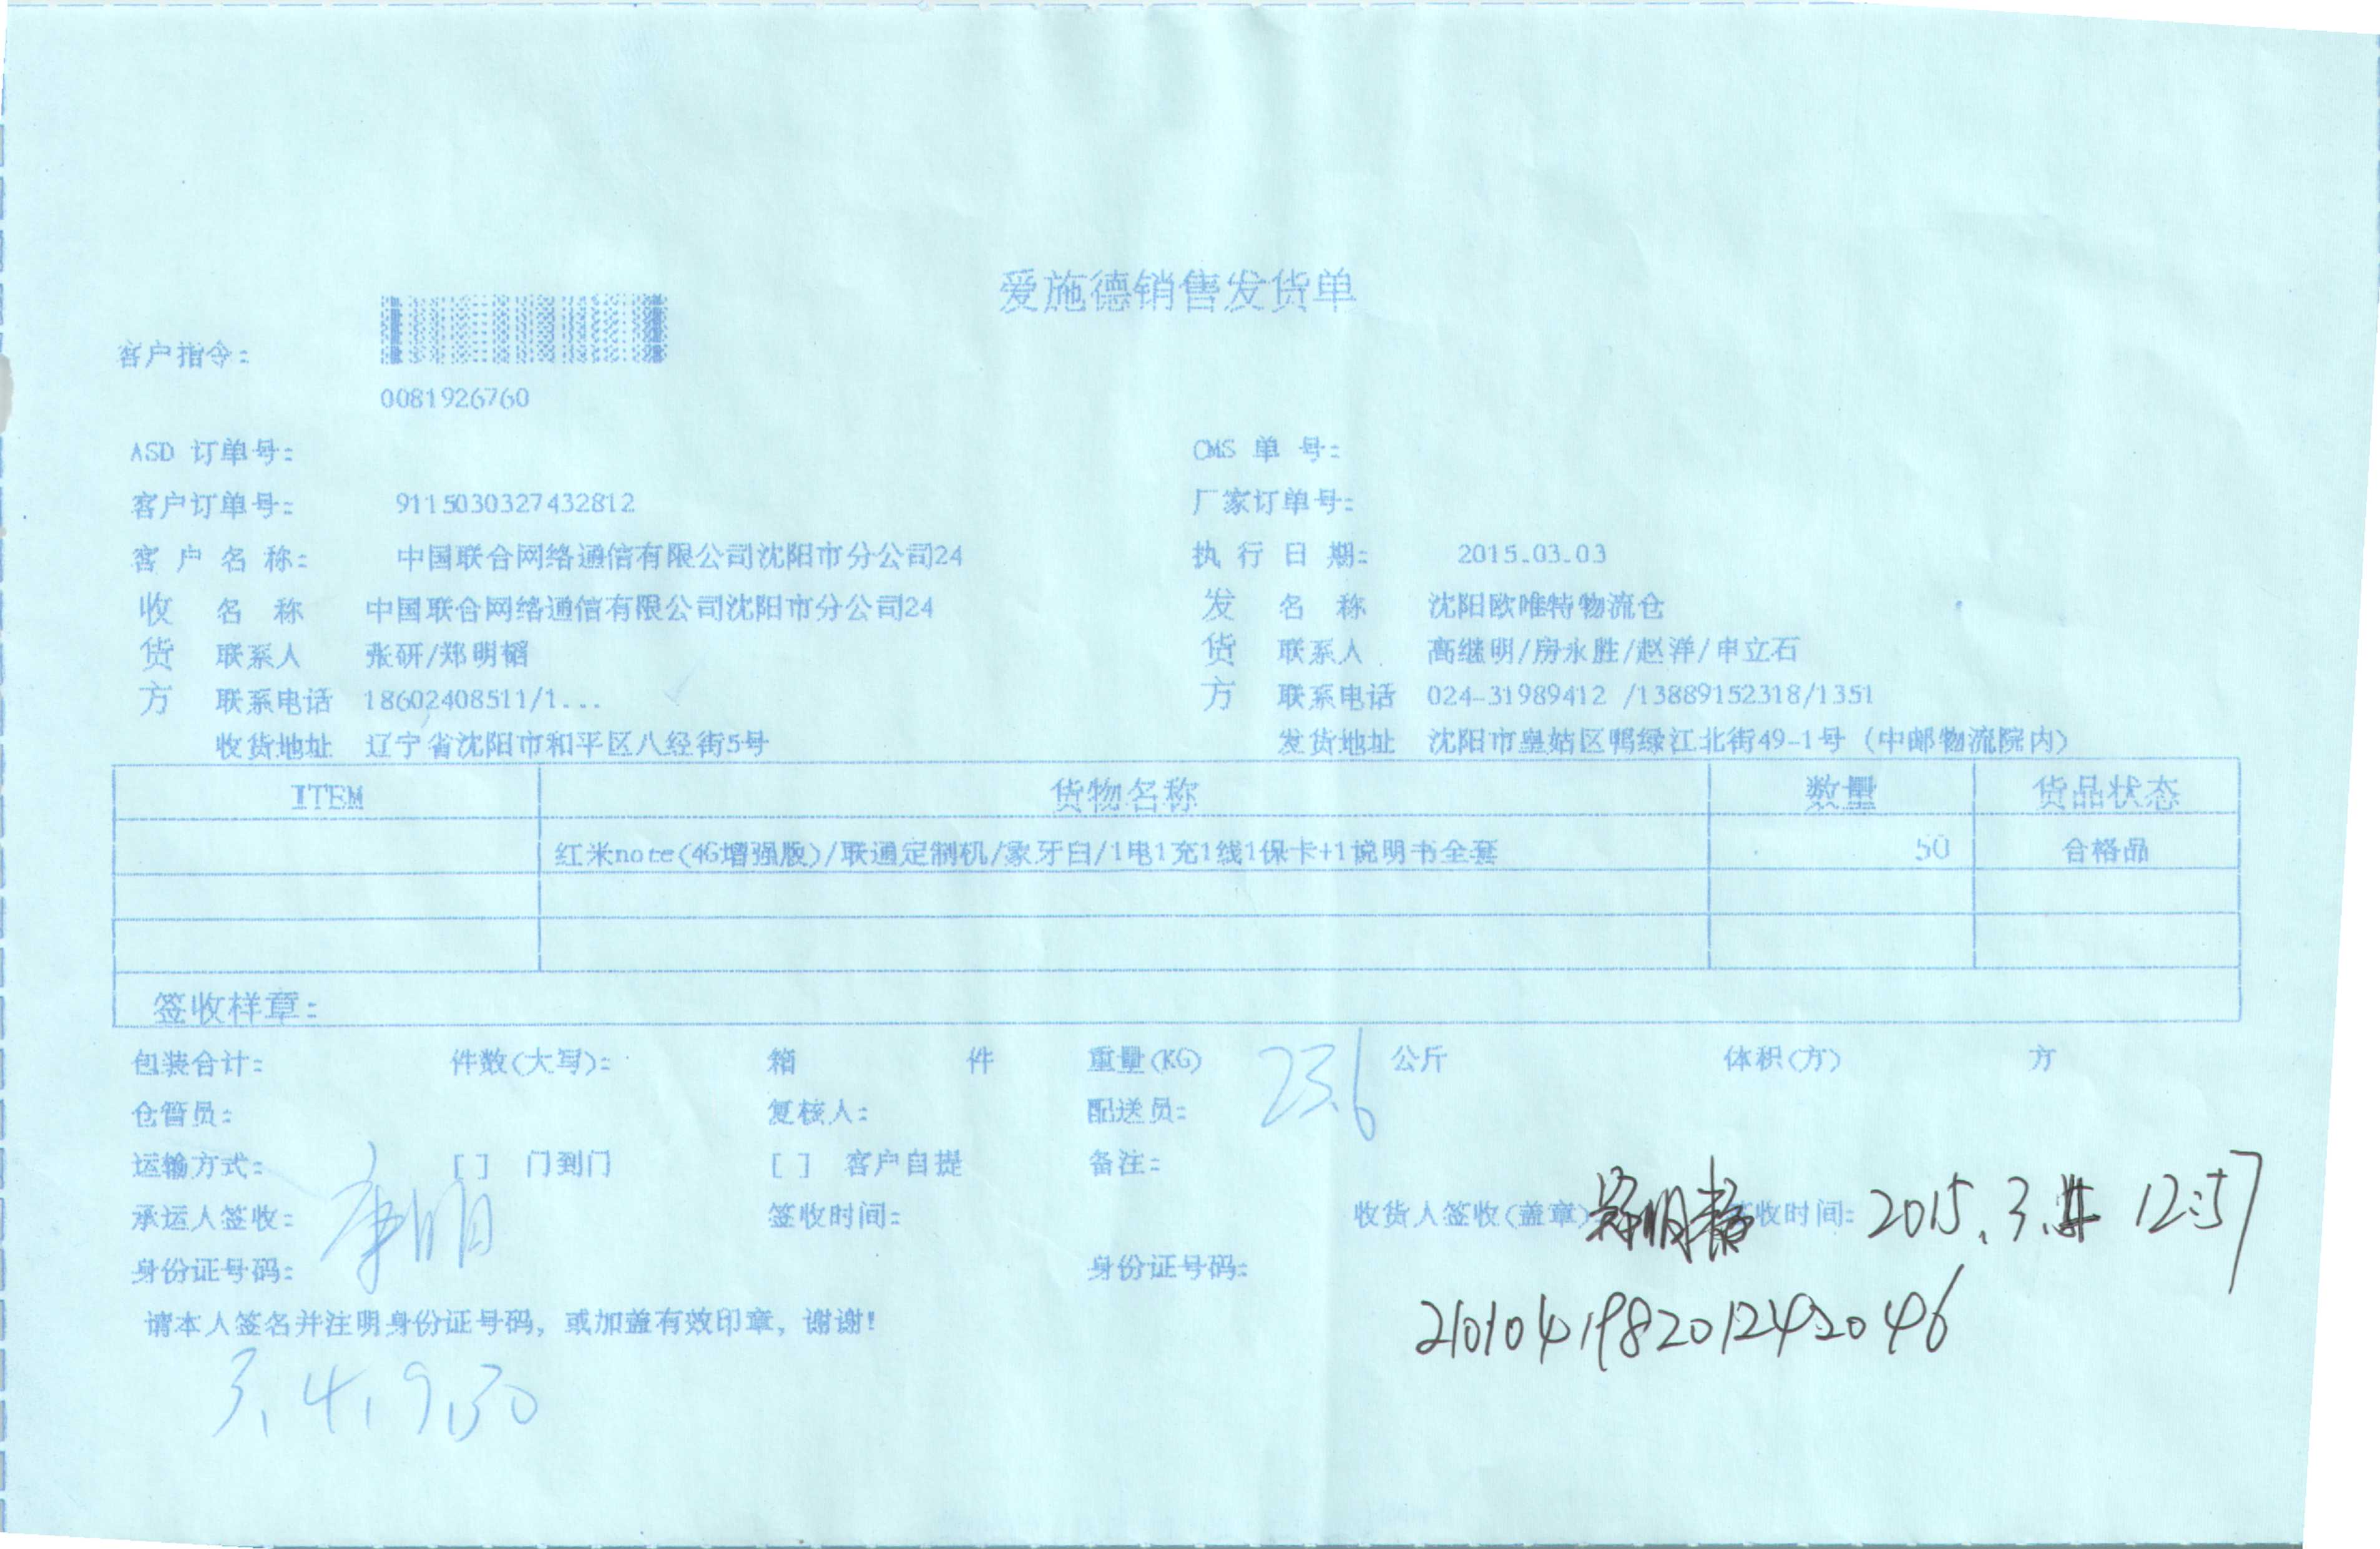 爱施德销售发货单
客户指令:
0081926760
ASD 订单号: CMS 单 号:
客户订单号: 9115030327432812 厂家订单号:
客 户 名 称: 中国联合网络通信有限公司沈阳市分公司24 执 行 日 期: 2015.03.03
收 名 称 中国联合网络通信有限公司沈阳市分公司24 发 名 称 沈阳欧唯特物流仓
货 联系人 张研/郑明韬 货 联系人 高继明/房永胜/赵洋/申立石
方 联系电话 18602408511/1... 方 联系电话 024-31989412 /13889152318/1351
收货地址 辽宁省沈阳市和平区八经街5号 发货地址 沈阳市皇姑区鸭绿江北街49-1号 (中邮物流院内)
ITEM 货物名称 数量 货品状态
红米note(4G增强版)/联通定制机/象牙白/1电1充1线1保卡+1说明书全套 50 合格品
签收样章:
包装合计: 件数(大写): 箱 件 重量(KG) 23.6 公斤 体积(方) 方
仓管员: 复核人: 配送员:
运输方式: [ ] 门到门 [ ] 客户自提 备注:
承运人签收: 签收时间: 收货人签收(盖章) 郑明 签收时间: 2015.3. 12:57
身份证号码: 身份证号码: 210104198201242046
请本人签名并注明身份证号码, 或加盖有效印章, 谢谢!
3.4.9.30